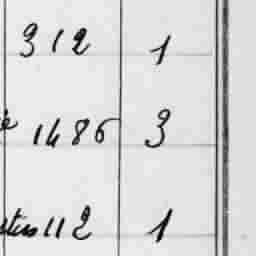 312 1
1486 3
112 1